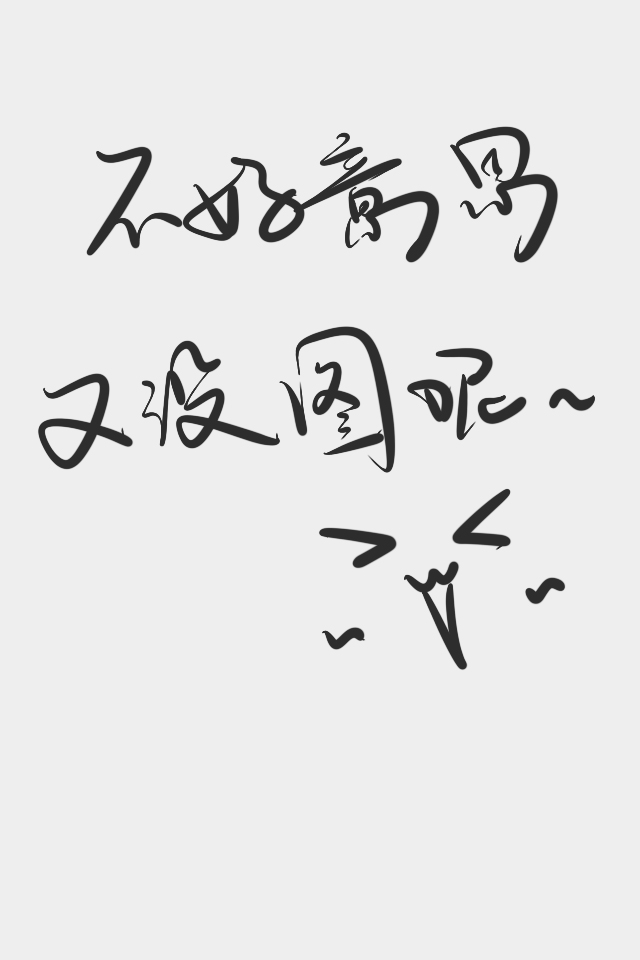 不好意思
又没图呢~